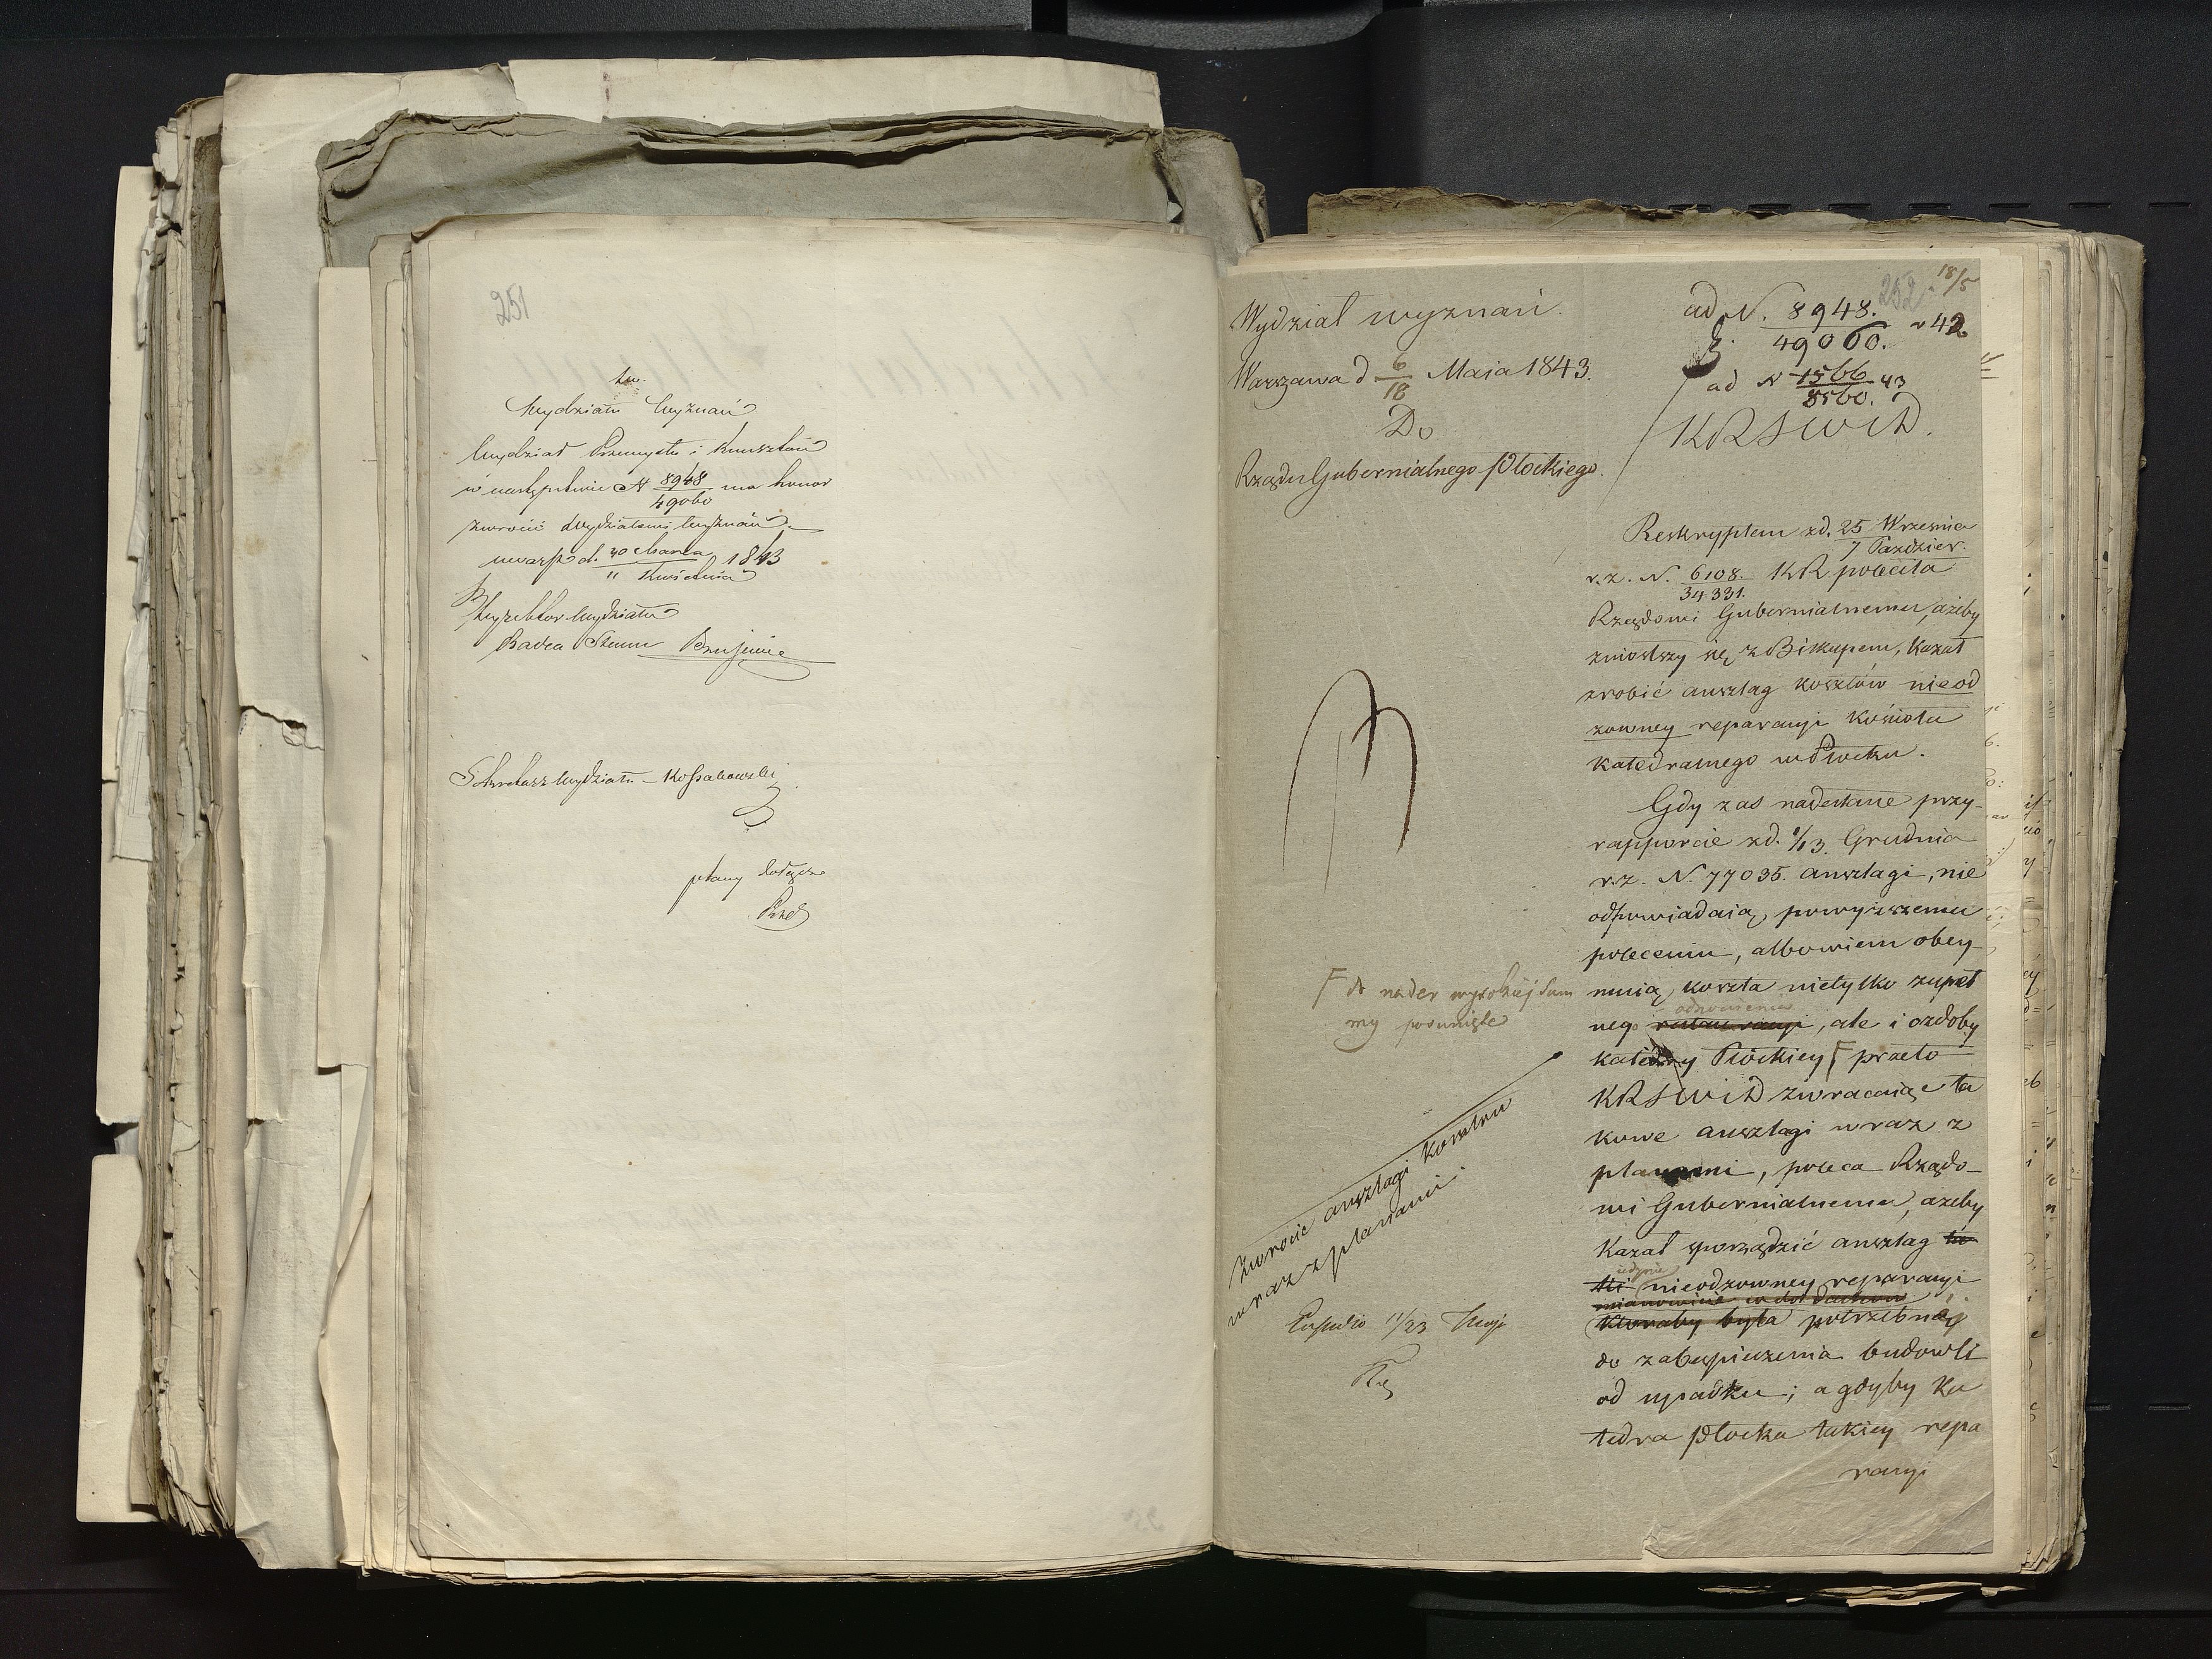 251
tu.
Wydziału Wyznań
Wydział Przemysłu i Kunsztów
w następstwie N 8948/49060 ma honor
zwrocić Wydziałowi Wyznań
w Warsz. d. 30 Marca/11 Kwietnia 1843
Dyrektor Wydziału
Radca Stanu
Sekretarz Wydziału Kossakowski
plany dołącza
252
18/5
Wydział wyznań.
ad N. 8948./49060. 42
Warszawa d 6/18 Maja 1843.
ad N 1566/8560. 43
Do
KRSWiD.
Rządu Gubernialnego Płockiego.
Reskryptem z d. 25 Września/7 Paździer.
r. z. N. 6108./34331. KR poleciła
Rządowi Gubernialnemu, ażeby
zniosłszy się z Biskupem, kazał
zrobić anszlag kosztów nieod
zowney reparacyi kościoła
katedralnego w Płocku.
Gdy zas nadesłane przy
rapporcie z d. 1/13. Grudnia
r. z. N. 77035. anszlagi, nie
odpowiadaią powyższemu
poleceniu, albowiem obey-
muią koszta nietylko zupeł
nego odnowienia, ale i ozdoby
katedry Płockiey F przeto
KRSWiD zwracaiąc ta
kowe anszlagi wraz z
planami, poleca Rządo-
wi Gubernialnemu, ażeby
kazał sporządzić anszlag
iedynie nieodzowney reparacyi
ktoraby była potrzebnéy
do zabezpieczenia budowli
od upadku; a gdyby Ka
tedra Płocka takiey repa
racyi
F do nader wysokiej Sum
my posunięte
Zwrocić anszlagi
wraz z planami.
11/23 Maja